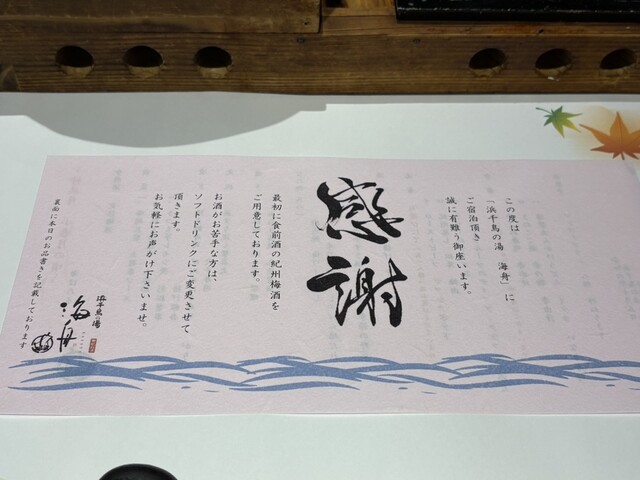 この度は
「浜千鳥の湯 海舟」に
ご宿泊頂き
誠に有難う御座います。
感謝
最初に食前酒の紀州梅酒を
ご用意しております。
お酒がお苦手な方は、
ソフトドリンクにご変更させて
頂きます。
お気軽にお声がけ下さいませ。
浜千鳥の湯
海舟
裏面に本日のお品書きを記載しております